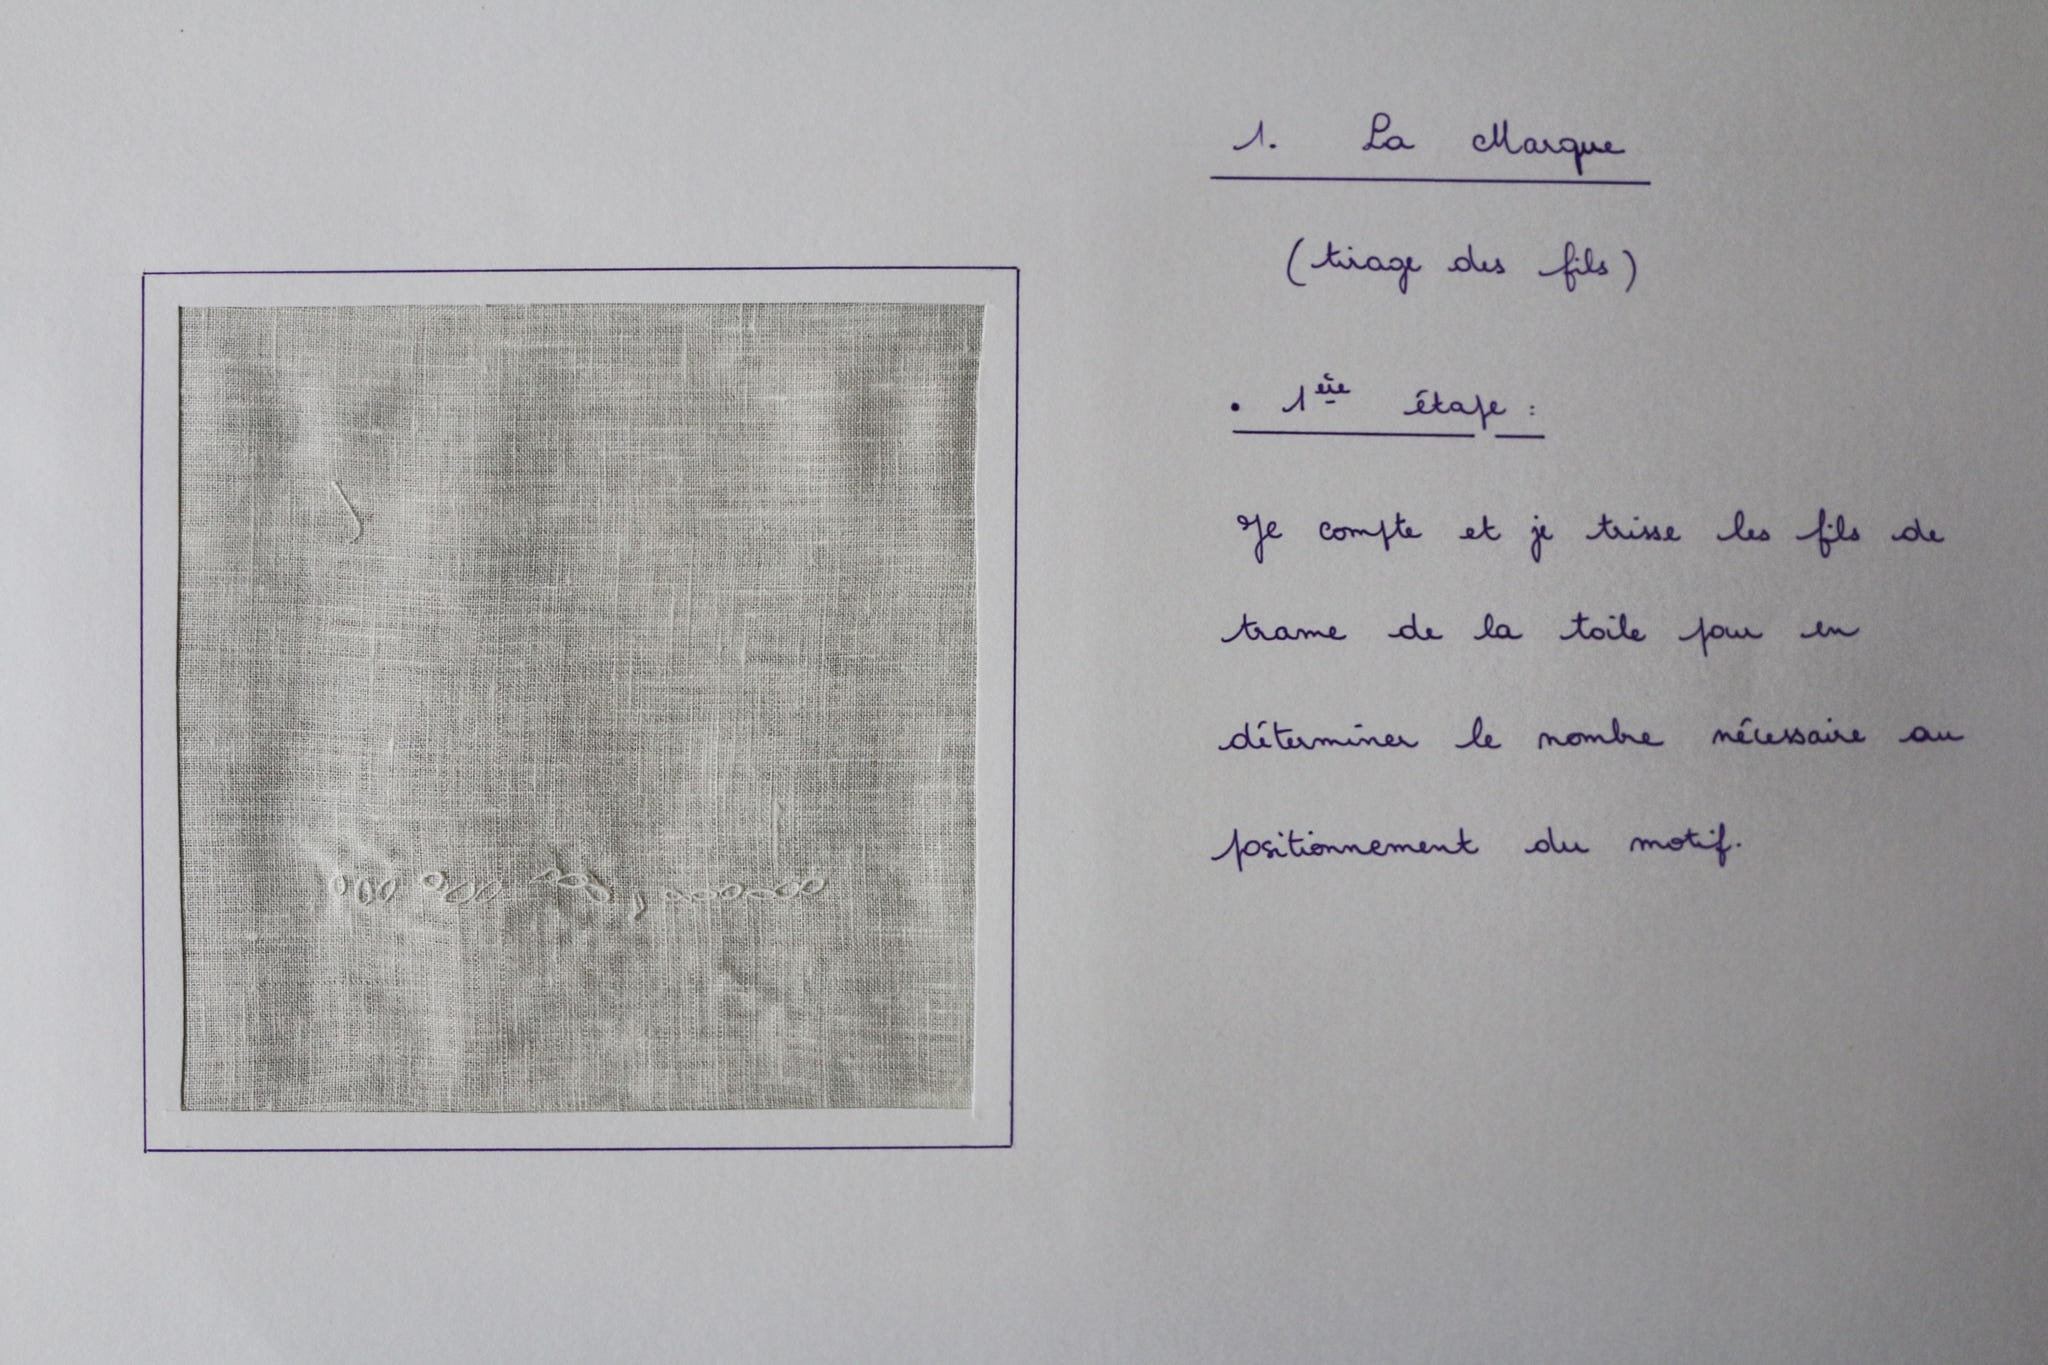 1. La Marque
(tirage des fils)
• 1ère étape :
Je compte et je trisse les fils de
trame de la toile pour en
déterminer le nombre nécessaire au
positionnement du motif.